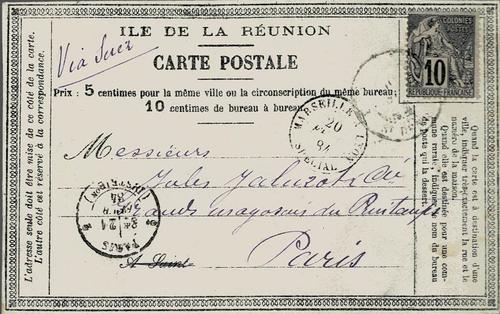 ILE DE LA RÉUNION
Via Suez
CARTE POSTALE
Prix : 5 centimes pour la même ville ou la circonscription du même bureau;
10 centimes de bureau à bureau
COLONIES
POSTES
10
RÉPUBLIQUE FRANÇAISE
MARSEILLE
20
84
SPÉCIAL
Messieurs
Jules Jaluzot & Cie
Grands magasins du Printemps
Paris
PARIS
84
(DISTRIBUTION)
L'adresse seule doit être mise de ce côté de la carte.
L'autre côté est réservé à la correspondance.
Quand la carte est à destination d'une
ville, mettre très-exactement la rue et le
numéro de la maison.
Quand elle est destinée pour une com-
mune rurale, indiquer le nom du bureau
de poste qui la dessert.